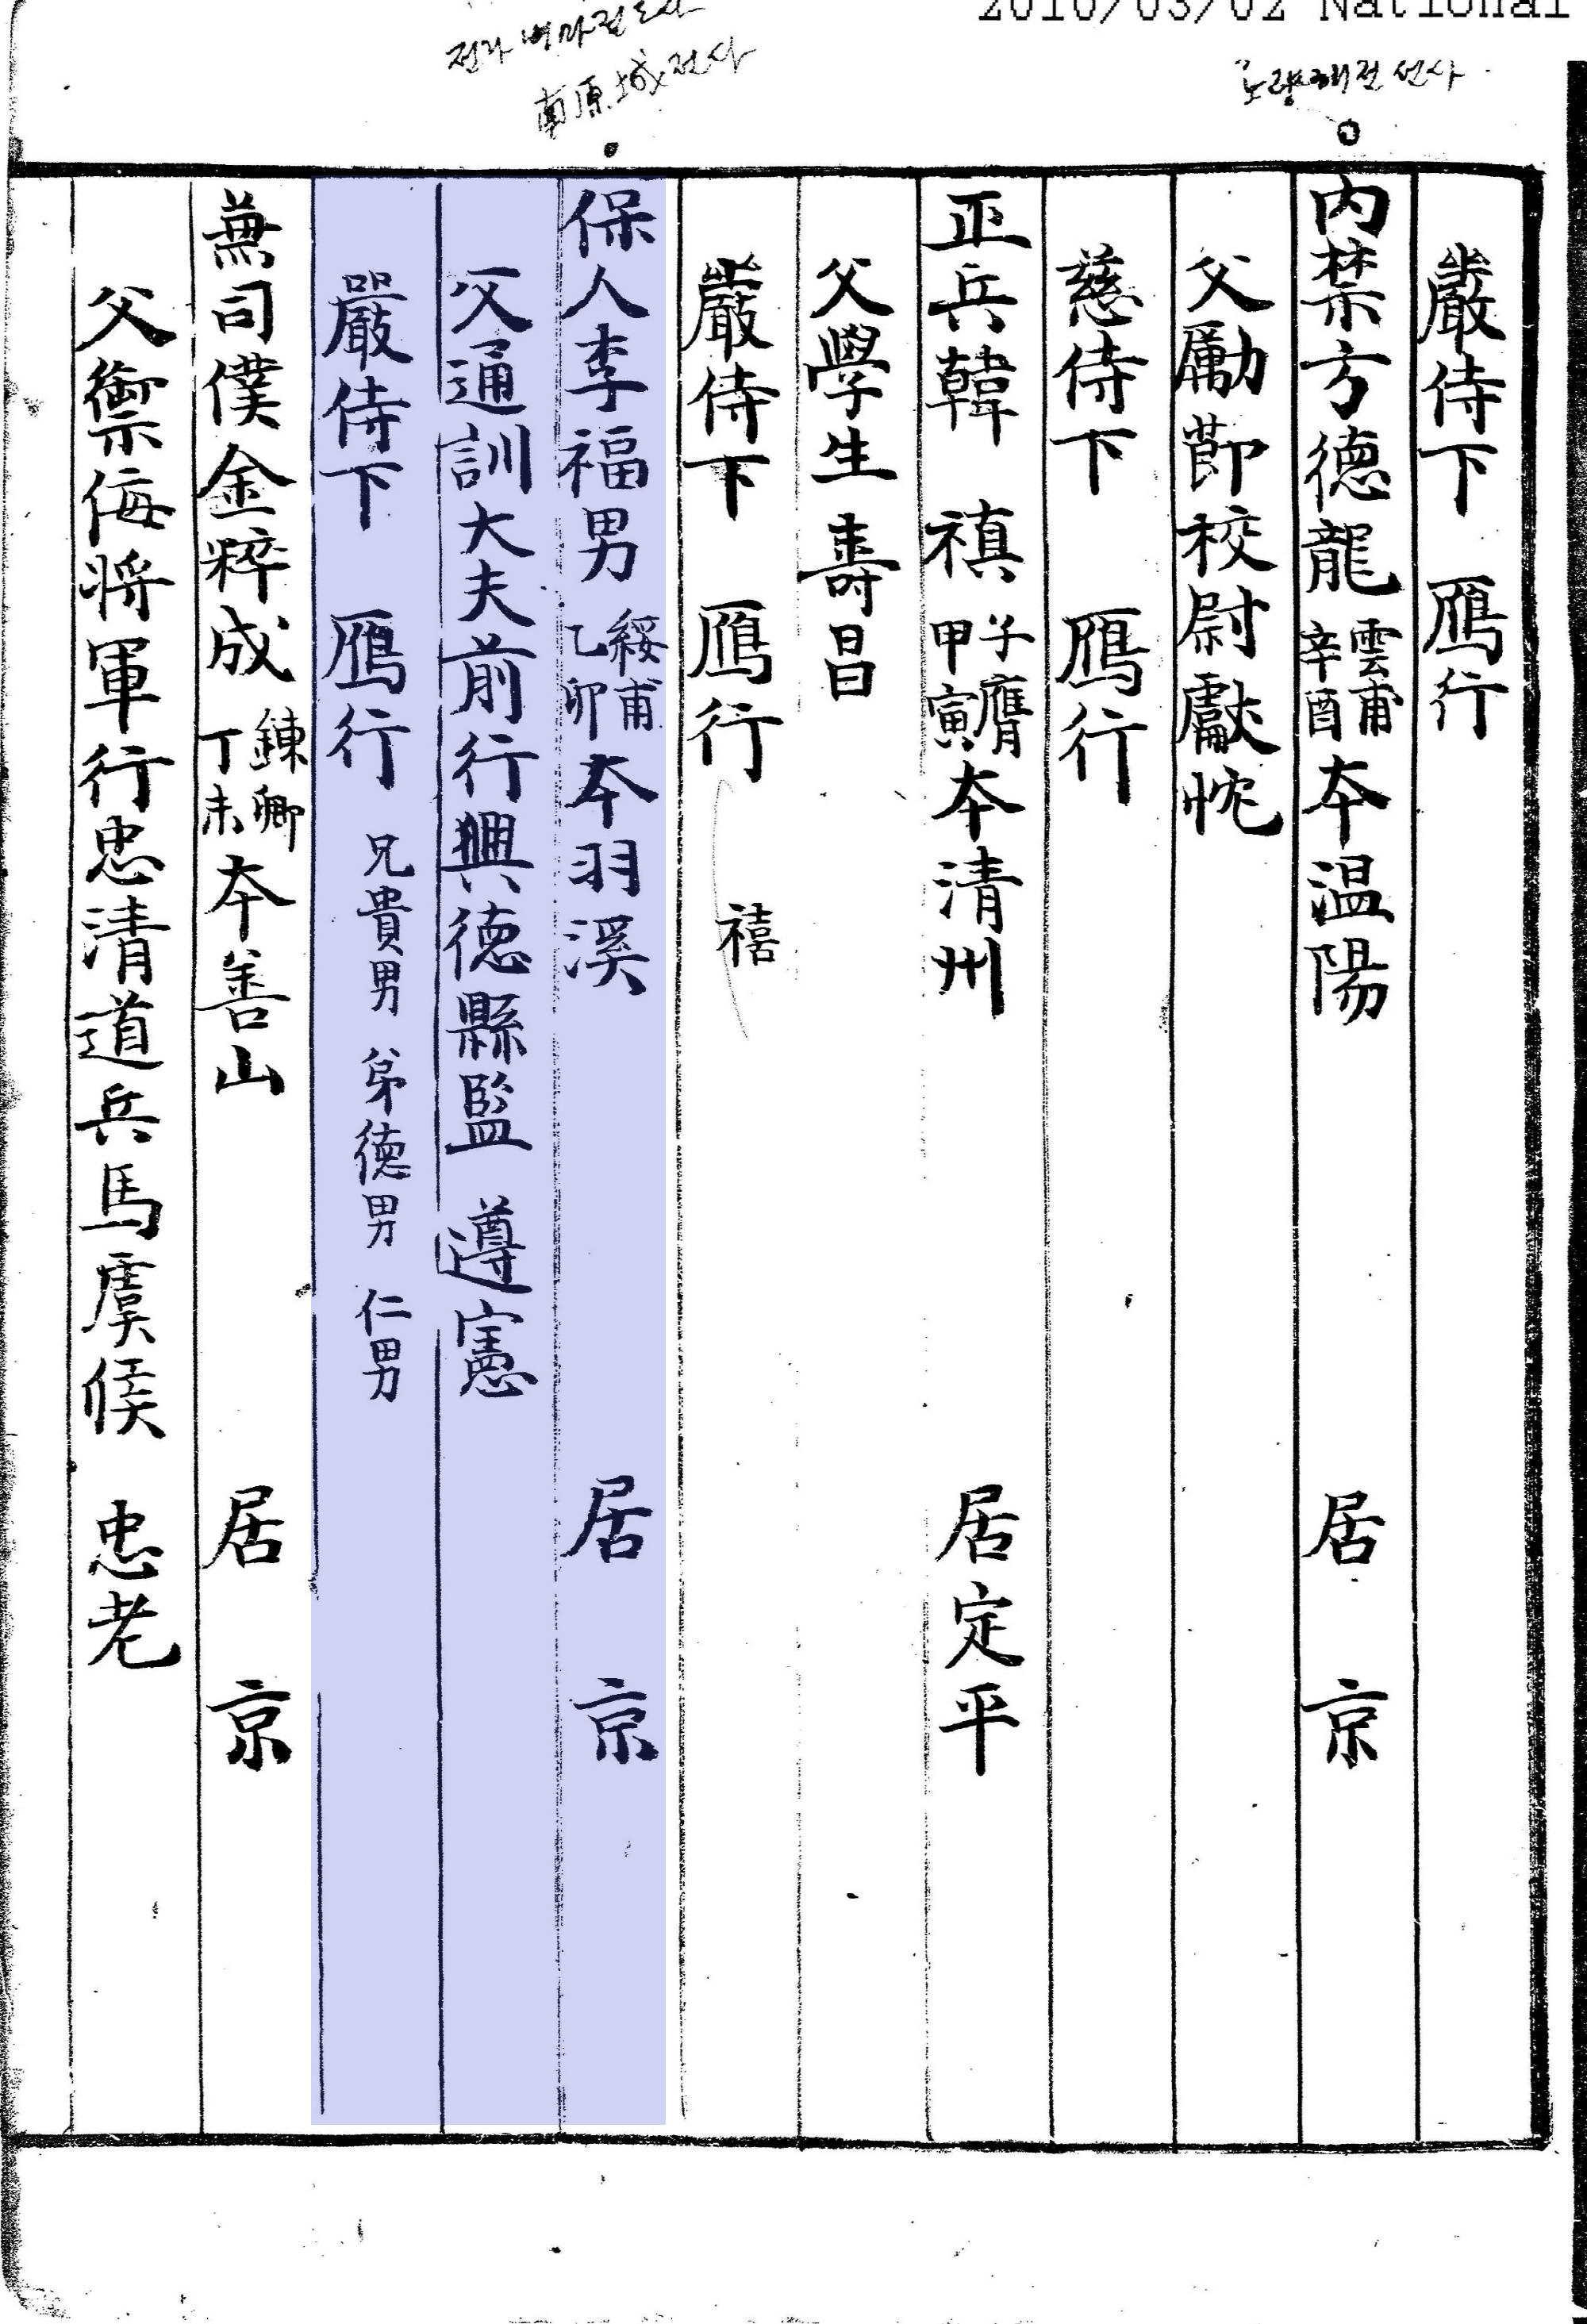 2010/03/02 National
노량해전 전사
南原城 전사
嚴侍下 鴈行
內禁方德龍 雲甫 辛酉 本温陽 居 京
父勵節校尉獻忱
慈侍下 鴈行
正兵韓 禛 子膺 甲寅 本清州 居定平
父學生 壽昌
嚴侍下 鴈行 禧
保人李福男 綏甫 乙卯 本羽溪 居 京
父通訓大夫前行興德縣監 遵憲
嚴侍下 鴈行 兄貴男 弟德男 仁男
兼司僕金粹成 鍊卿 丁未 本善山 居 京
父禦侮将軍行忠清道兵馬虞候 忠老